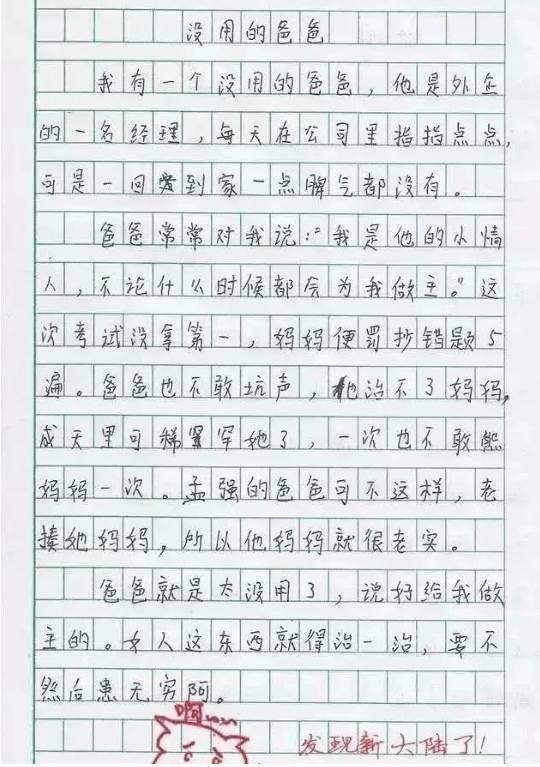 没用的爸爸
我有一个没用的爸爸，他是外企
的一名经理，每天在公司里指指点点，
可是一回到家一点脾气都没有。
爸爸常常对我说：“我是他的小情
人，不论什么时候都会为我做主。”这
次考试没拿第一，妈妈便罚抄错题5
遍。爸爸也不敢坑声，他治不了妈妈，
成天里可稀罕她了，一次也不敢熊
妈妈一次。孟强的爸爸可不这样，老
揍她妈妈，所以他妈妈就很老实。
爸爸就是太没用了，说好给我做
主的。女人这东西就得治一治，要不
然后患无穷阿。
啊
发现新大陆了！